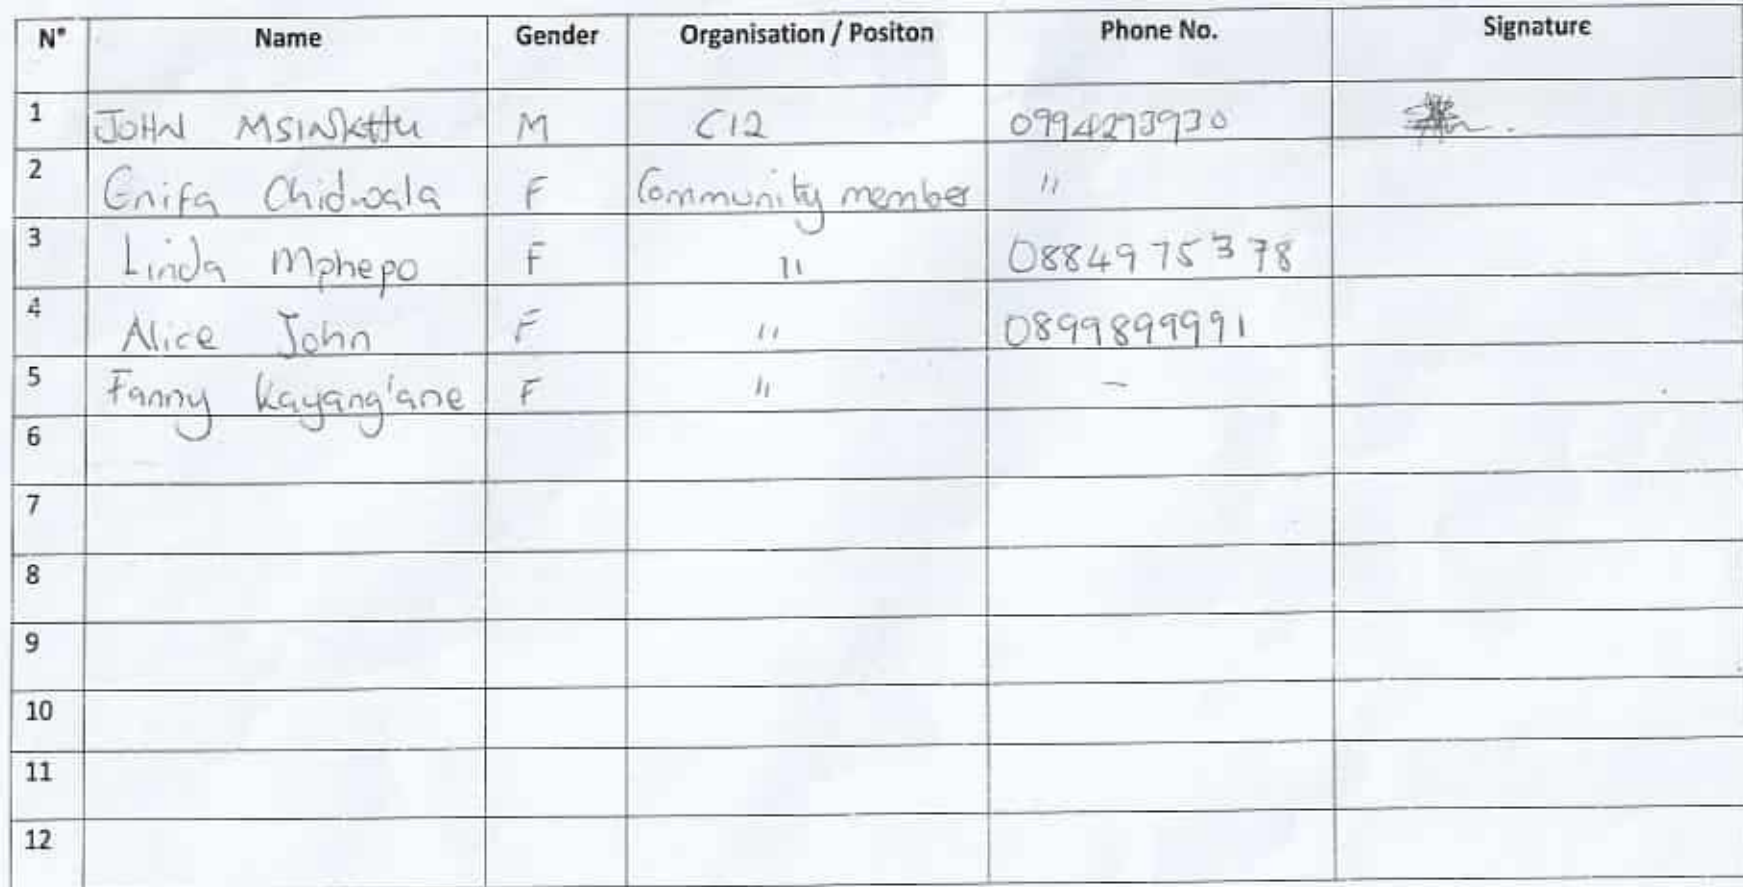 N° Name Gender Organisation / Positon Phone No. Signature
1 JOHN MSINKHU M C12 0994293930
2 Enifa Chidwala F Community member "
3 Linda Mphepo F " 0884975378
4 Alice John F " 0899899991
5 Fanny Kayang'ane F " -
6
7
8
9
10
11
12